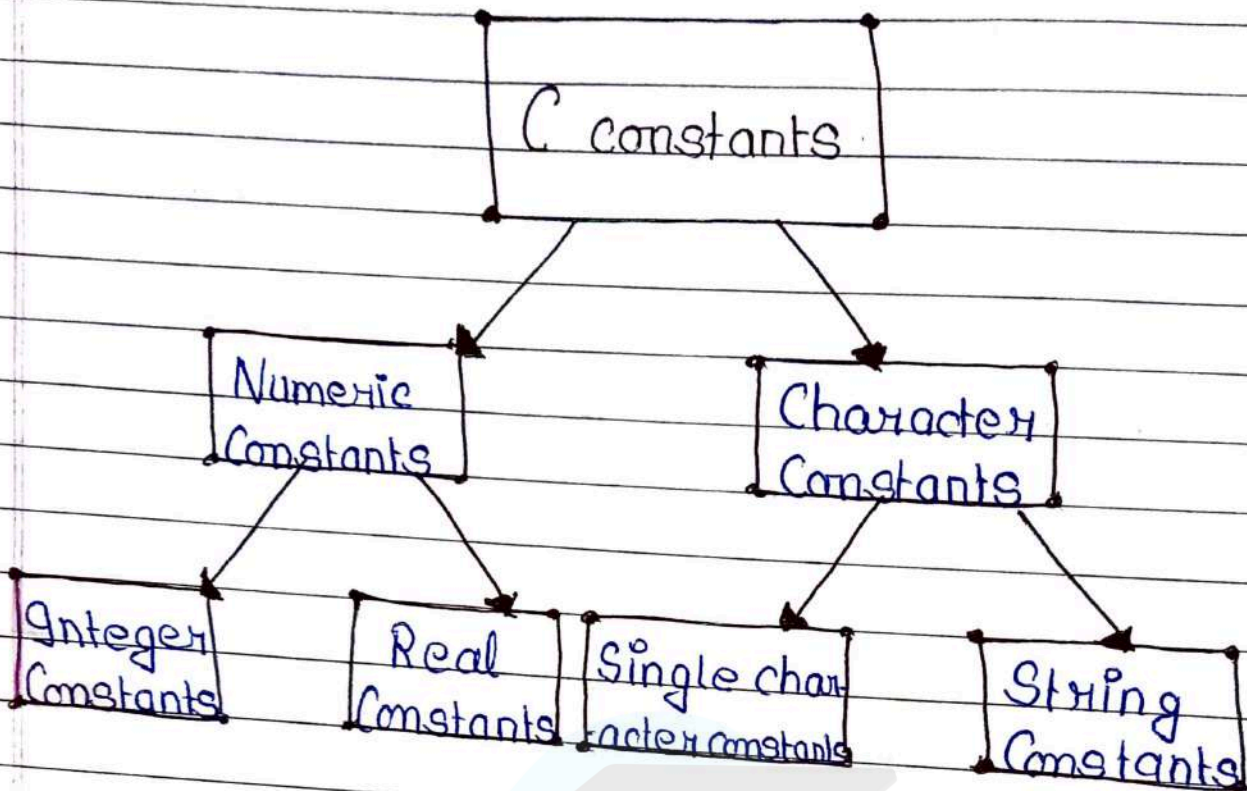 C constants
Numeric
Constants
Character
Constants
Integer
Constants
Real
Constants
Single char
-acter constants
String
Constants